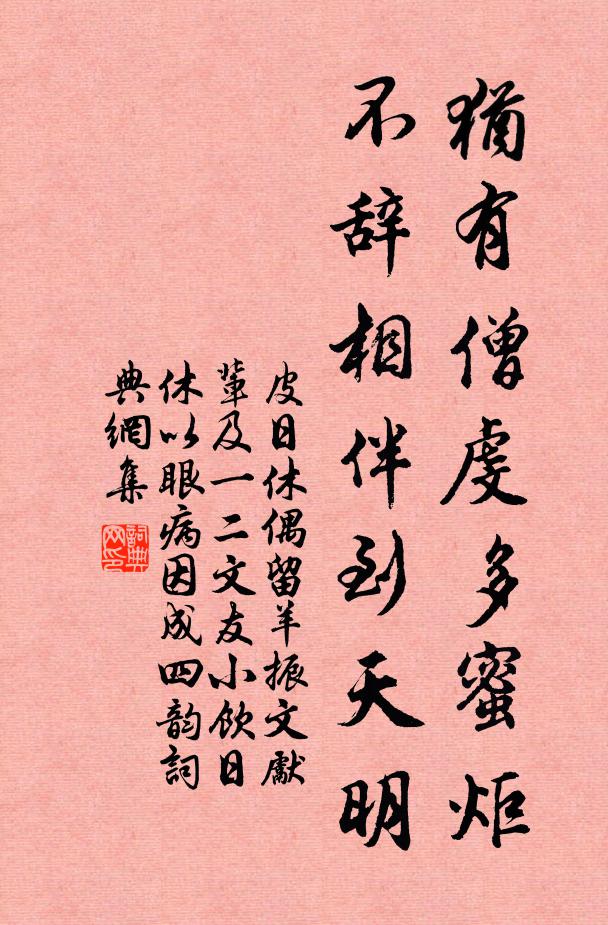 猶有僧虔多蜜炬
不辞相伴到天明
皮日休偶留羊振文獻
輩及一二文友小飲日
休以眼病因成四韵詞
典網集
詞典
网印